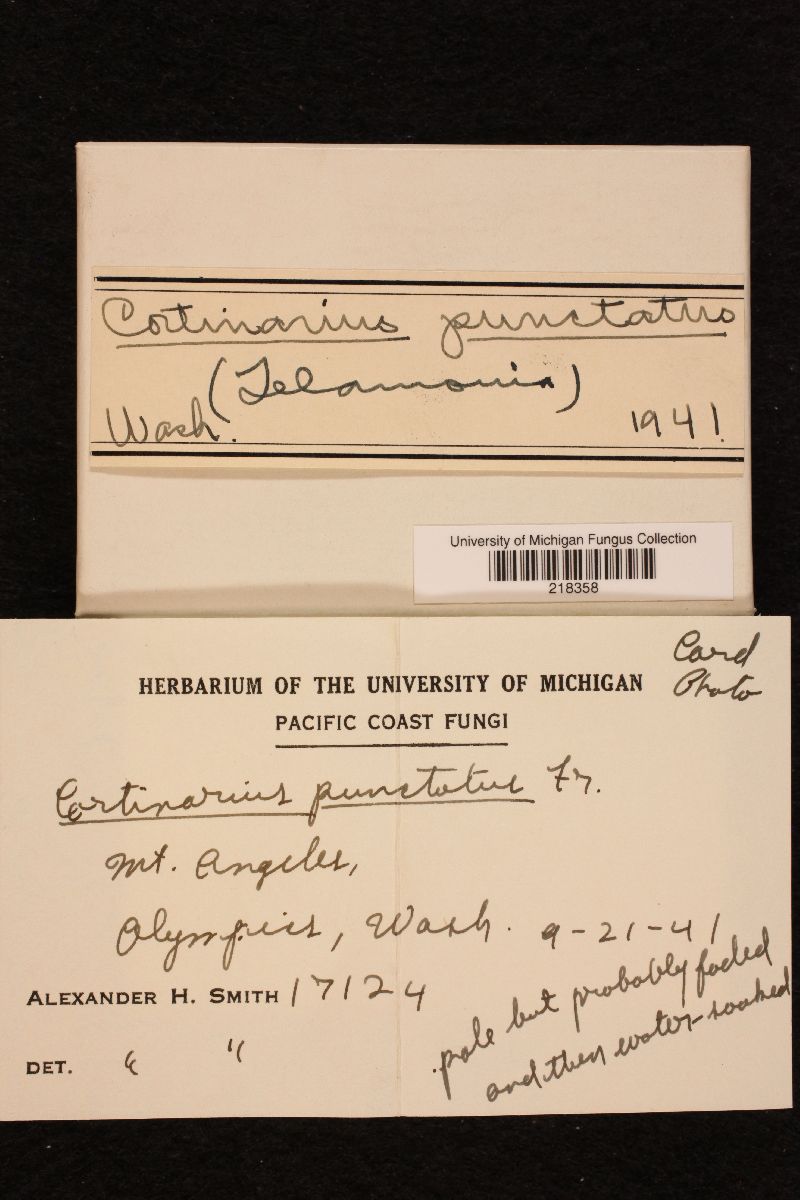 Cortinarius punctatus
(Telamonia)
Wash. 1941.
University of Michigan Fungus Collection
218358
Card
Photo
HERBARIUM OF THE UNIVERSITY OF MICHIGAN
PACIFIC COAST FUNGI
Cortinarius punctatus Fr.
Mt. Angeles,
Olympics, Wash. 9-21-41
ALEXANDER H. SMITH 17124
pale but probably faded
and then water-soaked
DET. " "